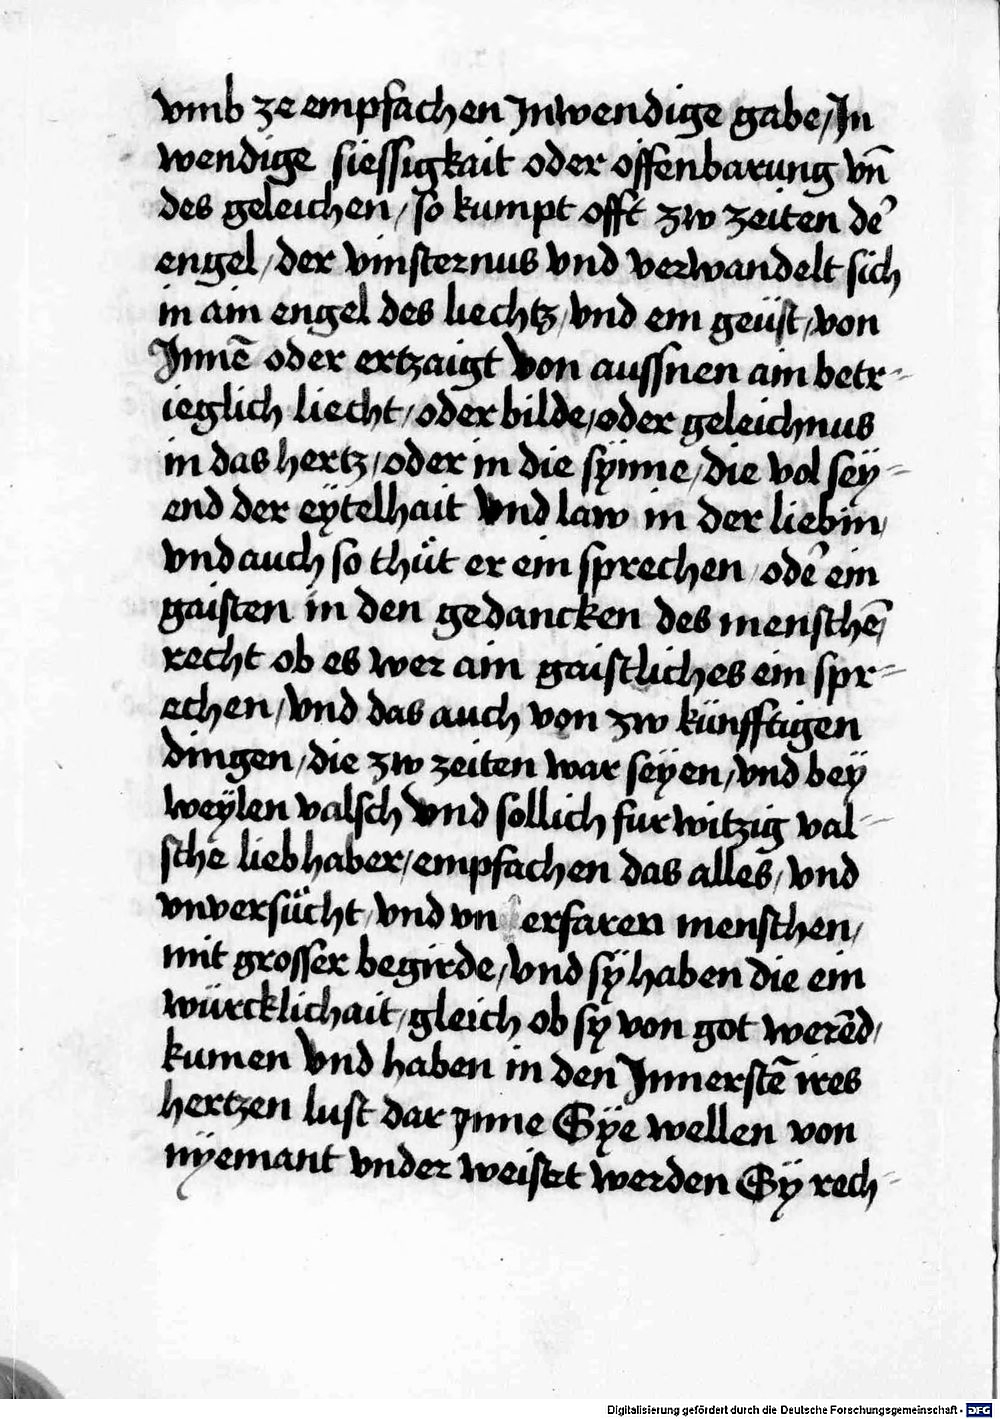 vmb ze empfachen Jnwendige gabe / Jn
wendige siessigkait oder offenbarung vn̄
des geleichen / so kumpt offt zw zeiten de᷒
engel / der vinsternus vnd verwandelt sich
in ain engel des liechtz / vnd em geüst / von
Jnnē oder ertzaigt von aussnen ain betr-
ieglich liecht / oder bilde / oder geleichnus
in das hertz / oder in die sÿnne / die vol seÿ-
end der eÿtelhait vnd law in der liebin /
vnd auch so thůt er ein sprechen / ode᷒ ein
gaisten in den gedancken des menschē /
recht ob es wer ain gaistliches ein spr-
echen / vnd das auch von zw künfftigen
dingen / die zw zeiten war seÿen / vnd beÿ
weÿlen valsch vnd sollich furwitzig val-
sche liebhaber / empfachen das alles / vnd
vnversůcht / vnd vn erfaren menschen /
mit grosser begirde / vnd sÿ haben die ein
würcklichait / gleich ob sy von got werēd /
kumen vnd haben in den Jnnerstē ires
hertzen lust dar jnne Sÿe wellen von
nÿemant vnder weistt werden Sÿ rech-
Digitalisierung gefördert durch die Deutsche Forschungsgemeinschaft - DFG